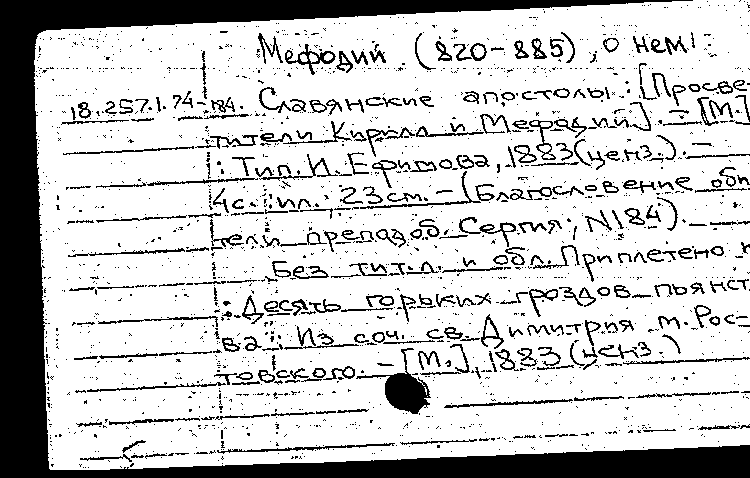 Мефодий (820-885), о нем:
18.257.1.74-184. Славянские апостолы: [Просве-
тители Кирилл и Мефодий]. - [М.]
: Тип. И. Ефимова, 1883(ценз.). -
4с.: ил.; 23см. - (Благословение оби
тели преподоб. Сергия; N184). -
Без тит.л. и обл. Приплетено к
: Десять горьких гроздов пьянст
ва: Из соч. св. Димитрия м. Рос-
товского. - [М.], 1883 (ценз.)